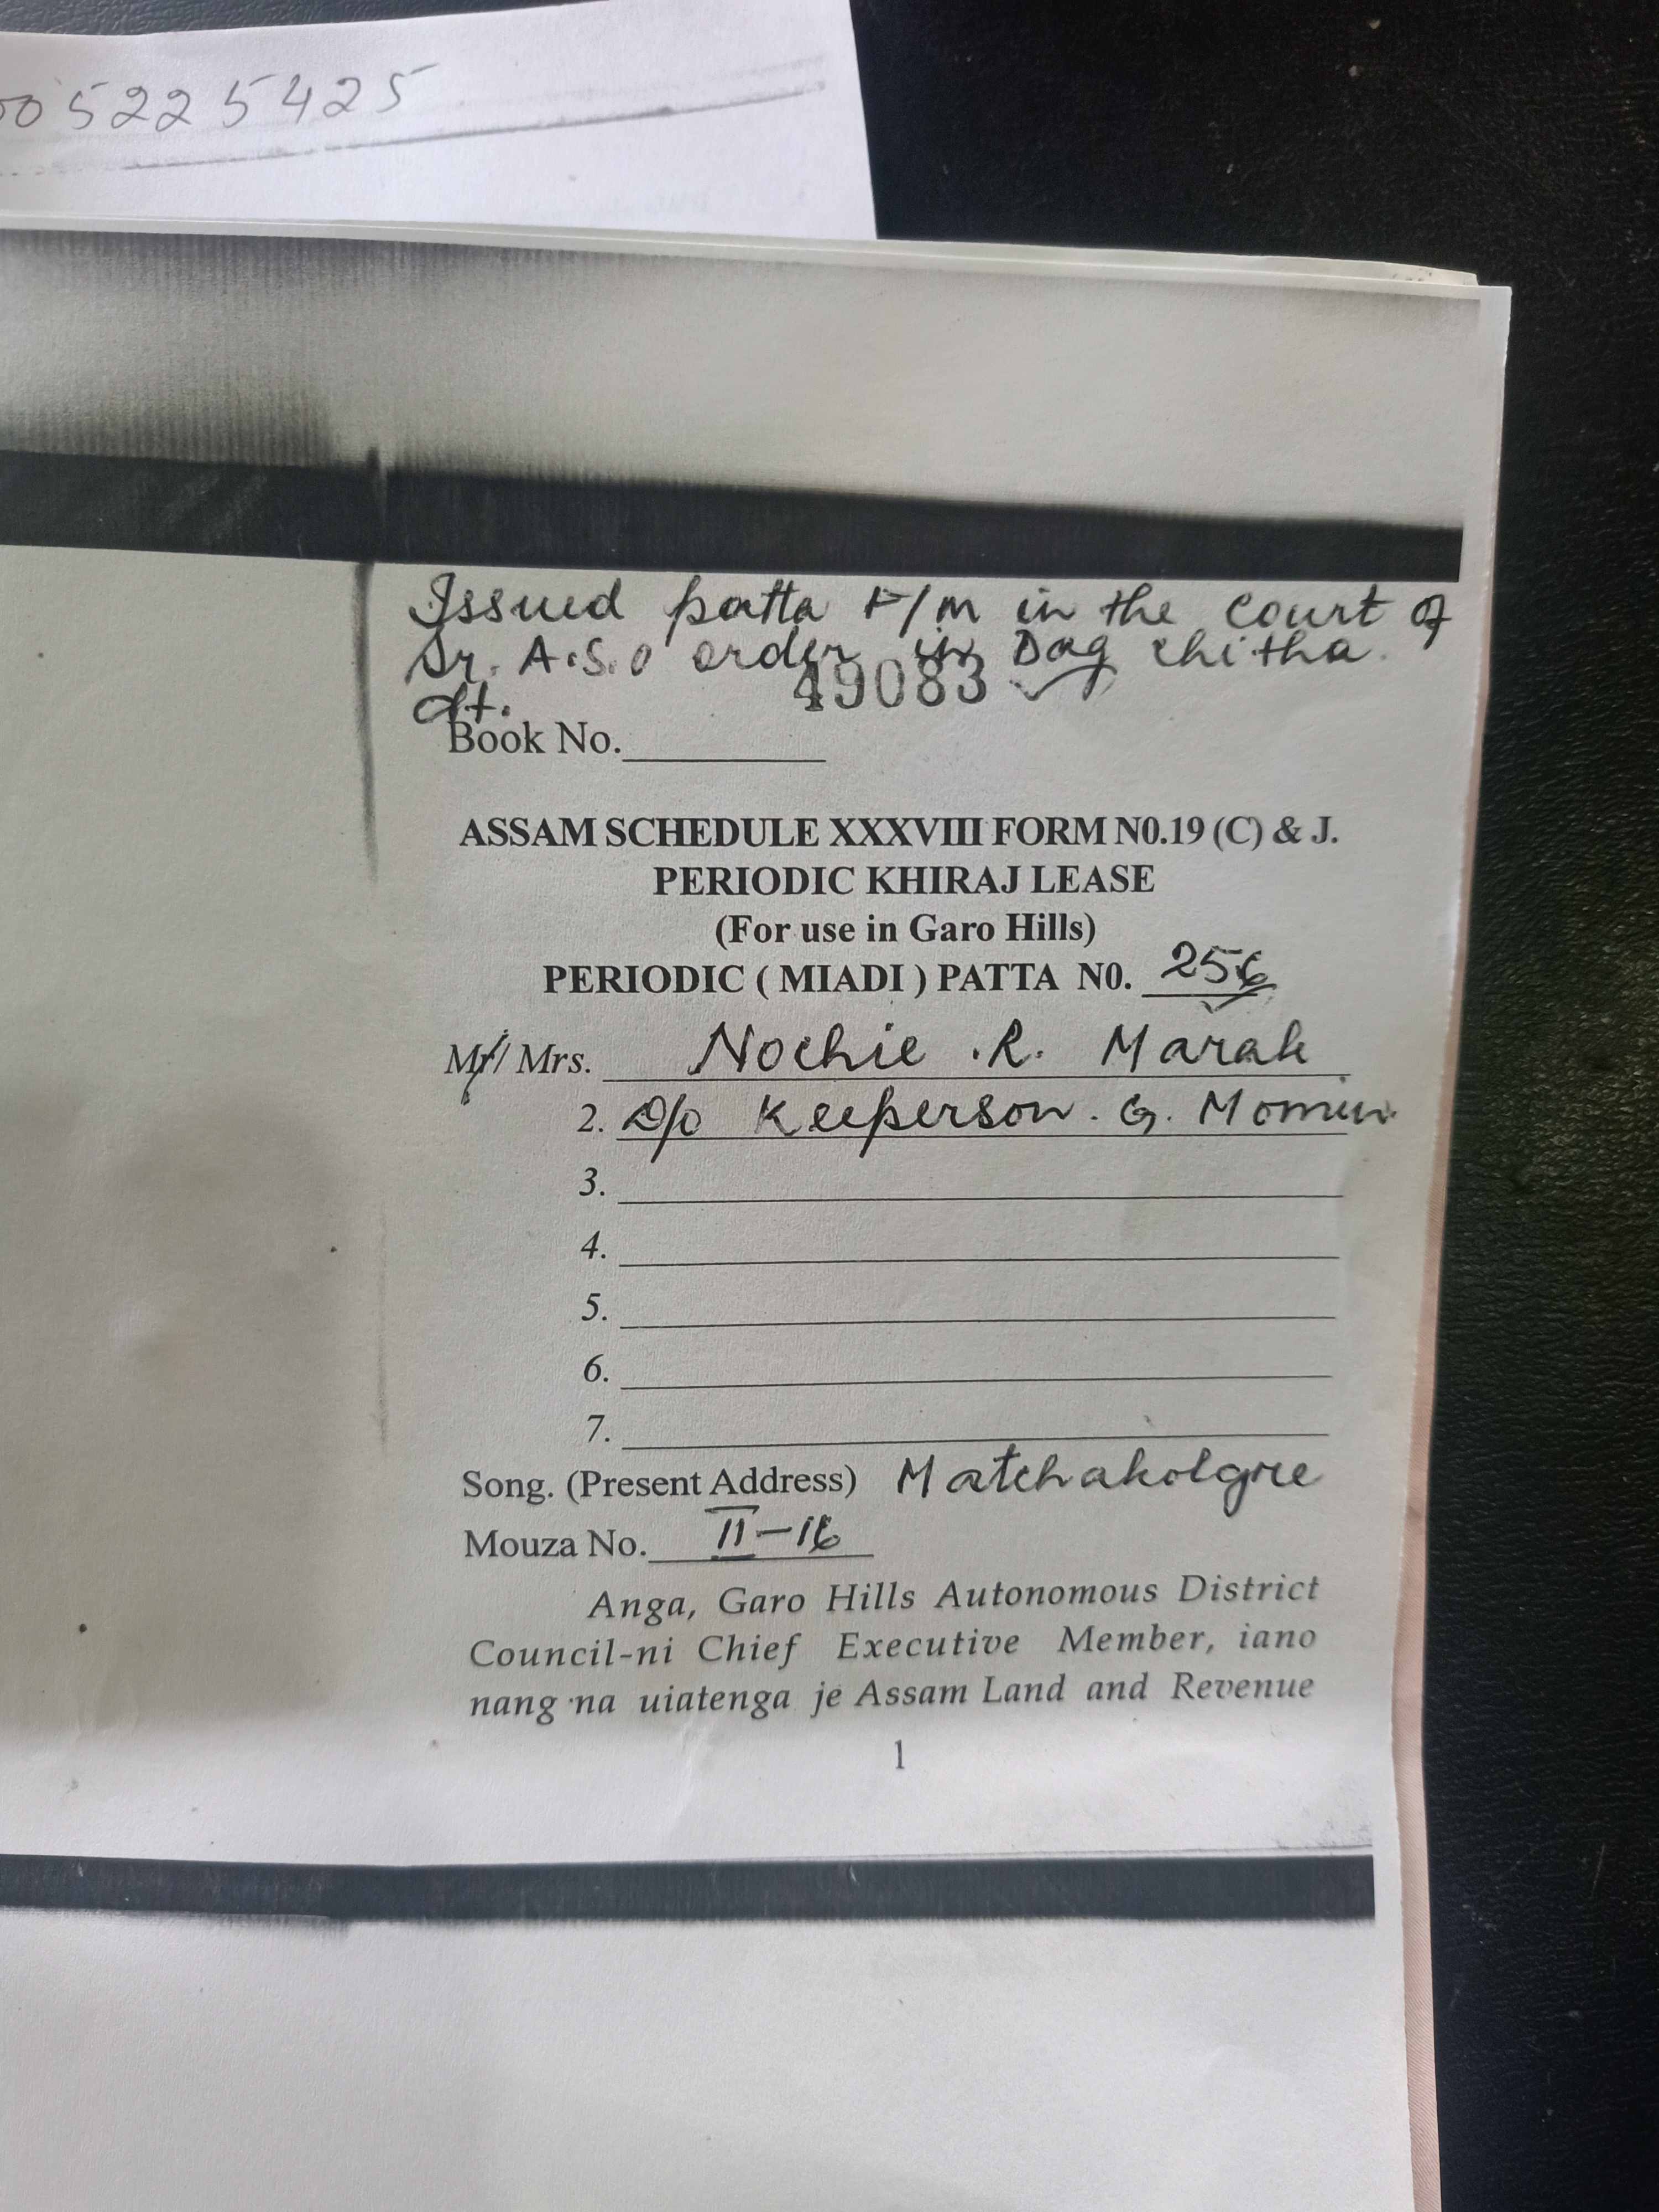 005225425
Issued patta F/m in the court of
Sr. A.S.O order in Dag chitha.
dt.
49083
Book No.
ASSAM SCHEDULE XXXVIII FORM N0.19 (C) & J.
PERIODIC KHIRAJ LEASE
(For use in Garo Hills)
PERIODIC ( MIADI ) PATTA N0. 256
Mr/ Mrs. Nochie .R. Marak
2. D/o Keeperson. G. Momin
3.
4.
5.
6.
7.
Song. (Present Address) Matchakolgre
Mouza No. II-16
Anga, Garo Hills Autonomous District
Council-ni Chief Executive Member, iano
nang·na uiatenga je Assam Land and Revenue
1